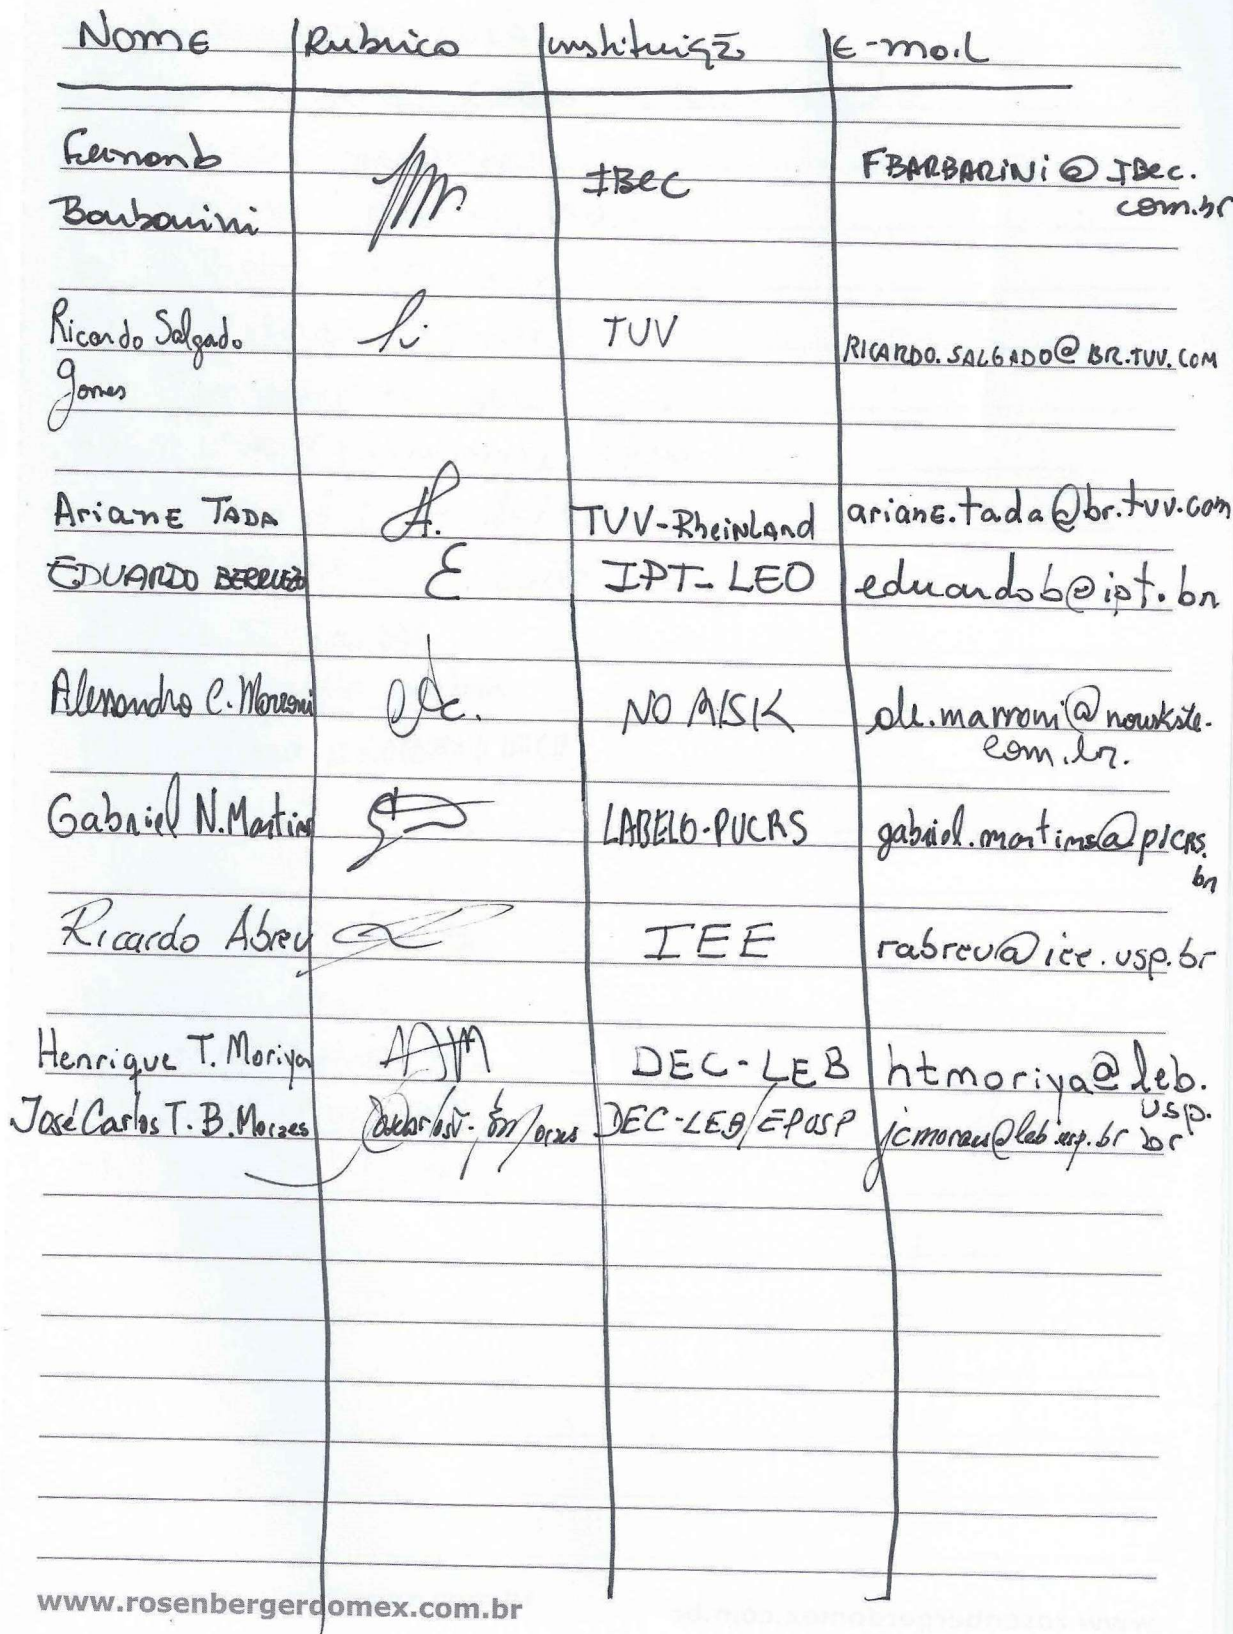 Nome Rubrica Instituição E-mail
Fernando
Barbarini
IBEC FBARBARINI@IBEC.
com.br
Ricardo Salgado TUV RICARDO.SALGADO@BR.TUV.COM
Gomes
Ariane TADA A. TUV-RheinLand ariane.tada@br.tuv.com
EDUARDO E IPT-LEO eduardob@ipt.br
Alessandro C. Marroni
com.br.
Gabriel N. Martins LABELO-PUCRS gabriel.martins@pucrs.
br
Ricardo Abreu IEE rabreu@iee.usp.br
Henrique T. Moriya DEC-LEB htmoriya@leb.
usp.
br
José Carlos T. B. Moraes DEC-LEB/EPUSP
www.rosenbergerdomex.com.br